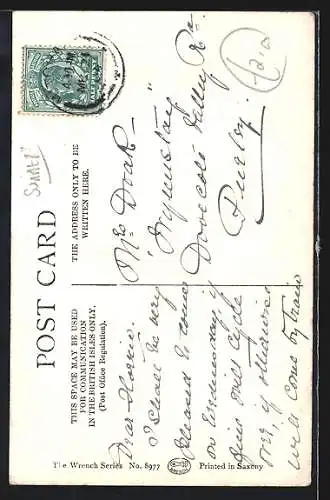 POST CARD
THIS SPACE MAY BE USED
FOR COMMUNICATION
IN THE BRITISH ISLES ONLY.
(Post Office Regulation).
THE ADDRESS ONLY TO BE
WRITTEN HERE.
Dear
I shall be very
pleased to come
on Wednesday, if
fine will cycle
over, if otherwise
will come by train
Mrs Doak
Dovecote Valley Rd
Purley
The Wrench Series No. 8977
Printed in Saxony
HALFPENNY